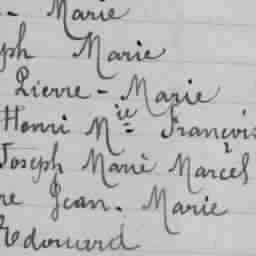 - Marie
ph Marie
Pierre - Marie
Henri Mie François
Joseph Marie Marcel
re Jean - Marie
Edouard